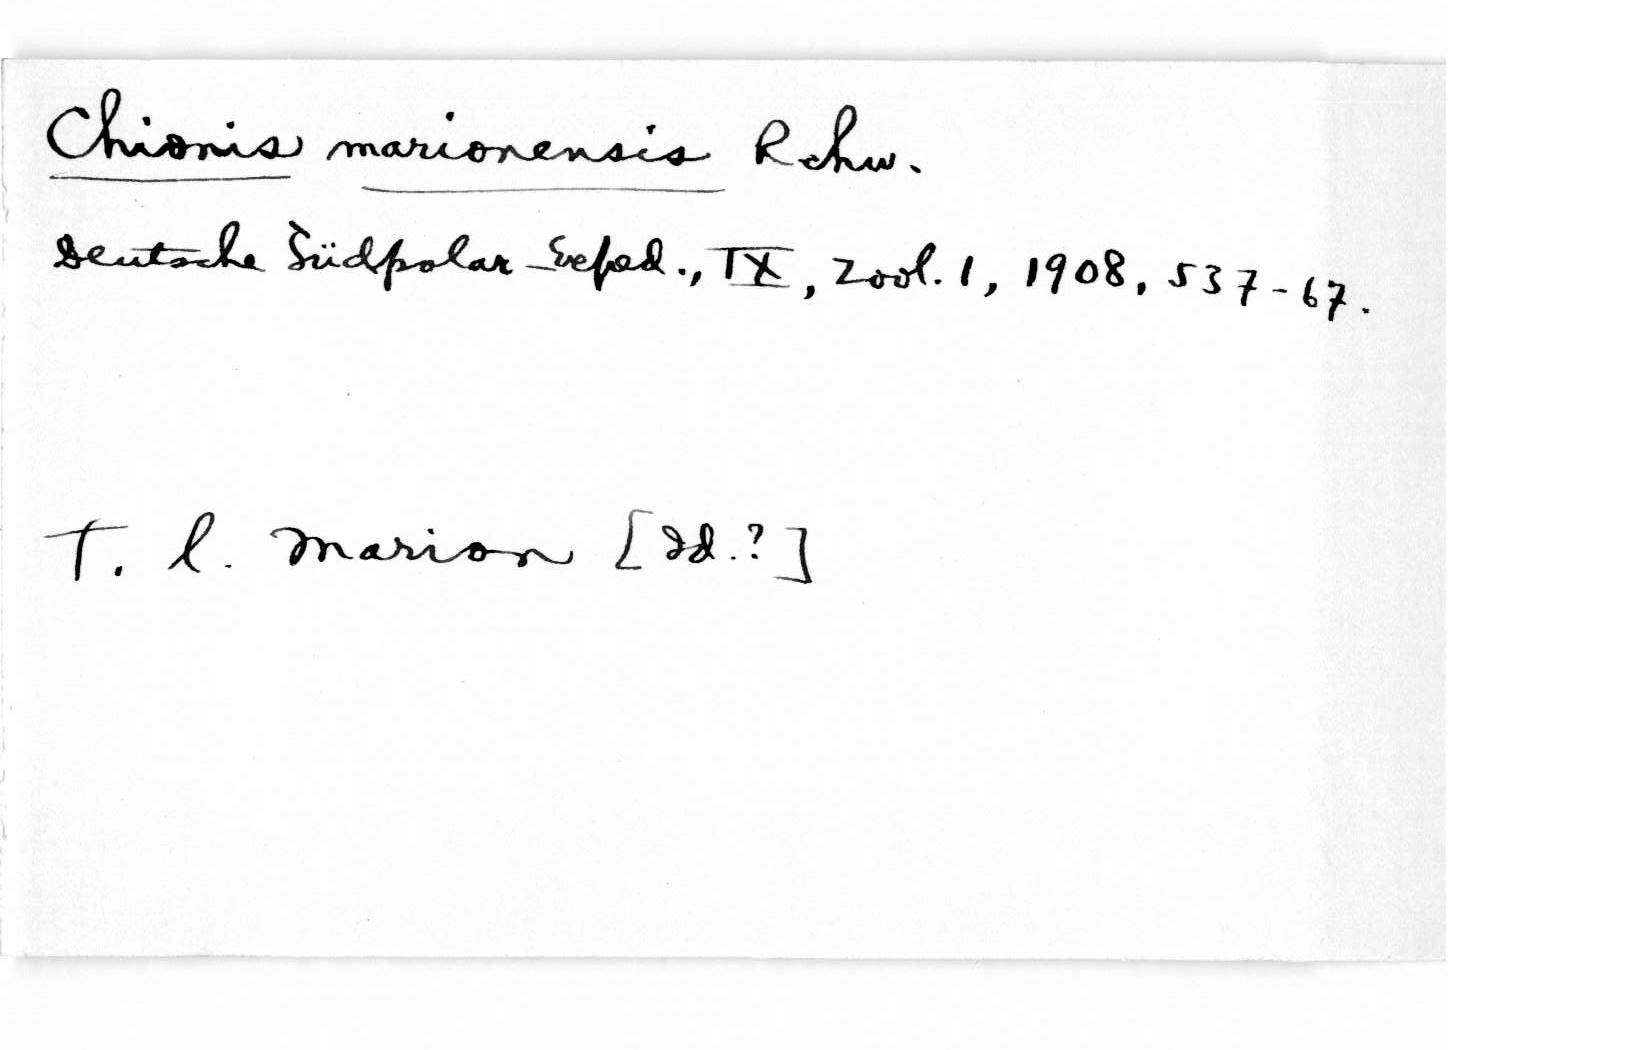 Chionis marionensis Rchw.
Deutsche Südpolar-Exped., IX, Zool. 1, 1908, 537-67.
T. l. Marion [Id.?]